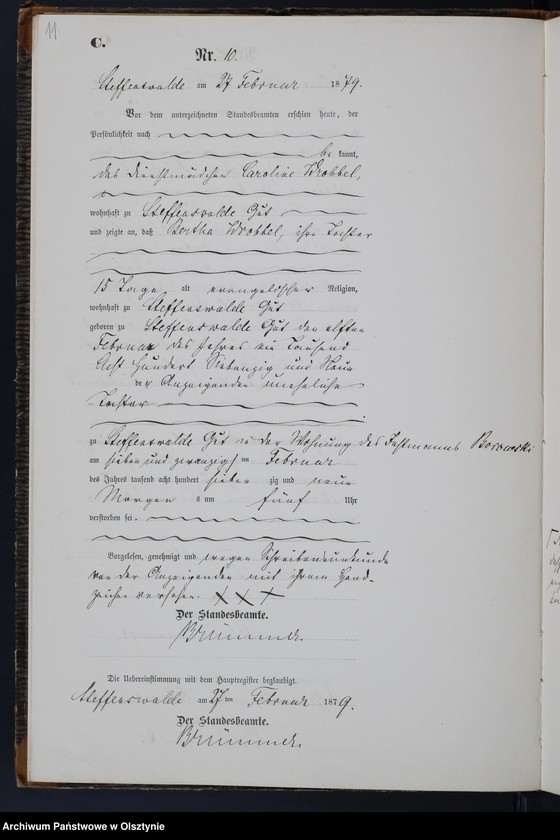 11
C.
Nr. 10.
Steffenswalde am 27 Februar 1879.
Vor dem unterzeichneten Standesbeamten erschien heute, der
Persönlichkeit nach
be kannt,
das Dienstmädchen Caroline Wrobbel,
wohnhaft zu Steffenswalde Gut
und zeigte an, daß Bertha Wrobbel, ihre Tochter
15 Tage, alt evangelischer Religion,
wohnhaft zu Steffenswalde Gut
geboren zu Steffenswalde Gut den elften
Februar des Jahres ein Tausend
Acht Hundert Siebenzig und Neun
der Anzeigenden uneheliche
Tochter
zu Steffenswalde Gut in der Wohnung des Instmanns Borowski
am sieben und zwanzigsten Februar
des Jahres tausend acht hundert sieben zig und neun
Morgens um fünf Uhr
verstorben sei.
Vorgelesen, genehmigt und wegen Schreibensunkunde
von der Anzeigenden mit ihrem Hand-
zeichen versehen. X X X
Der Standesbeamte.
Brümmer.
Die Uebereinstimmung mit dem Hauptregister beglaubigt.
Steffenswalde am 27 ten Februar 1879.
Der Standesbeamte.
Brümmer.
Archiwum Państwowe w Olsztynie